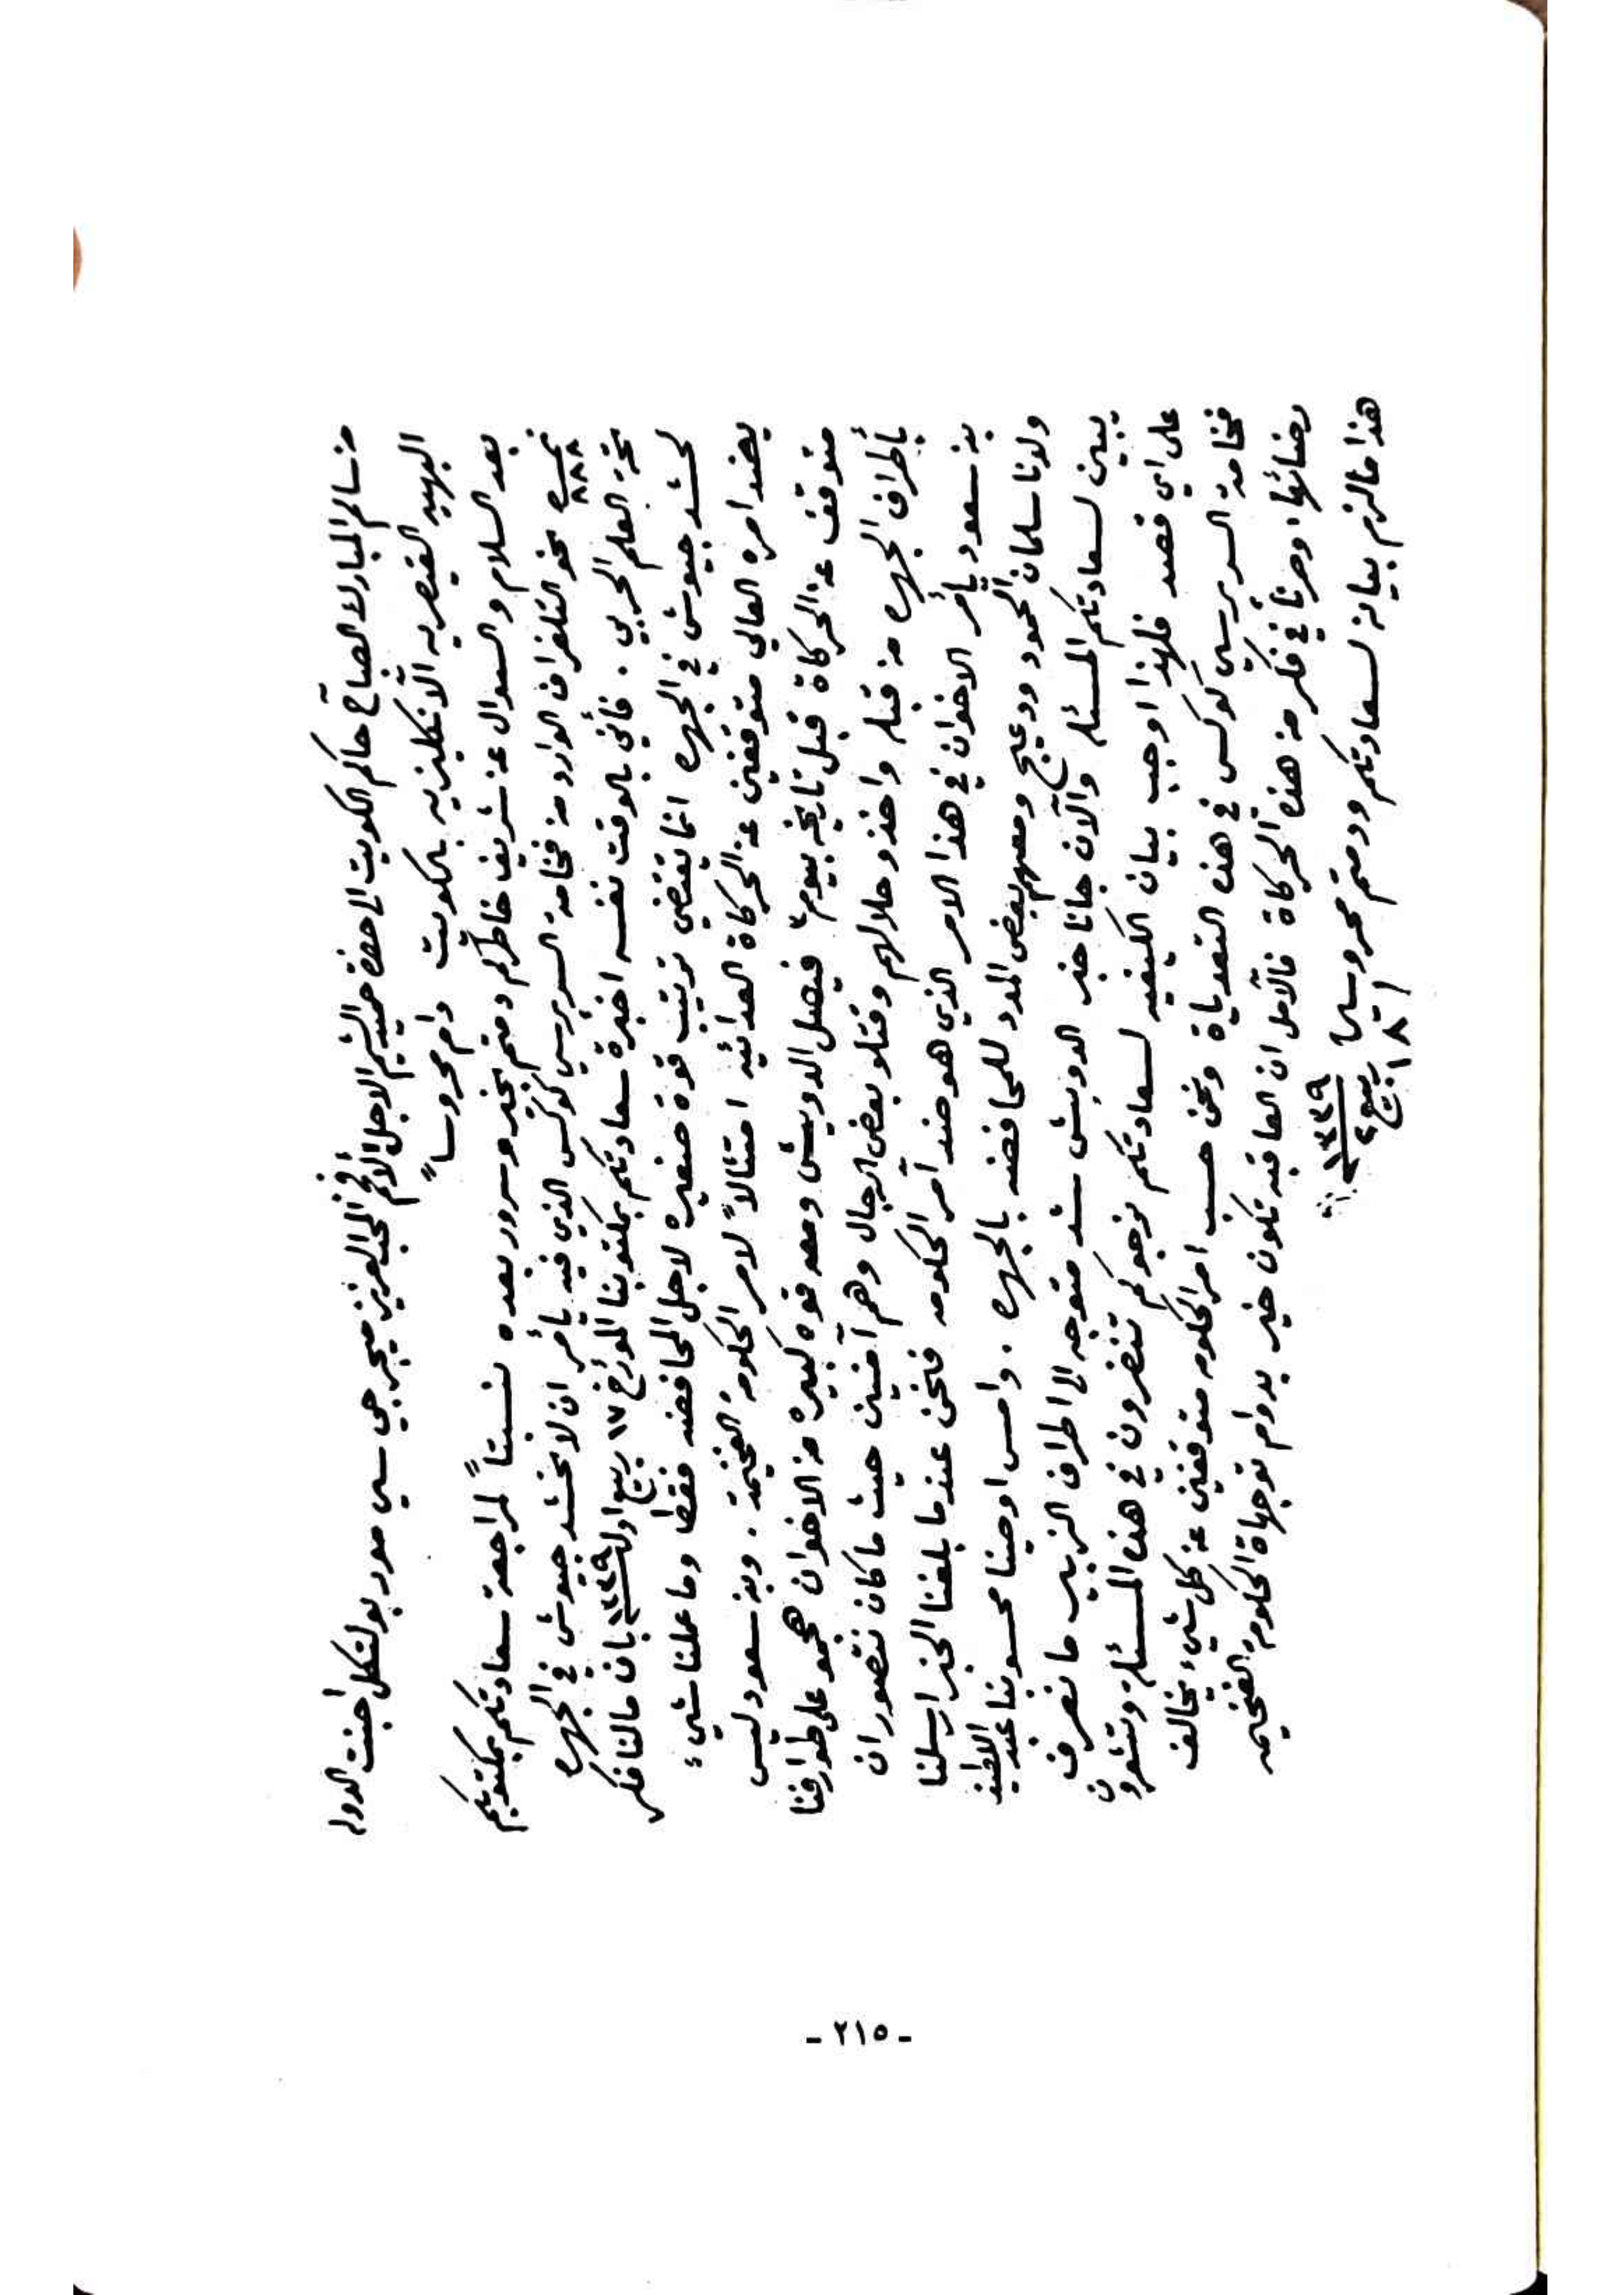 من سالم المبارك الصباح حاكم الكويت الى حضرة حميد الشيم الاجل الأفخم المحب العزيز ميجر جي سي مور بولتكل اجنت الدولة
البهيه القيصريه الأنكليزيه بالكويت دام محروساً
بعد السلام والسوال عن شريف خاطركم دمتم بخير وسرور بعده نسبتاً لمراجعة سعادتكم بمكتوبكم
نمره ٨٨٨ نحو التلغراف الوارد من فخامة السر پرسي كوكس الذي فيه يأمر ان لا نحشد جيوش في الجهره
تحت العلم الحربي . فأني بالوقت نفسه اخبرت سعادتكم بمكتوبنا المؤرخ ١٧ ربيع اول ١٣٣٩ بان مالنا فكر
لحشد جيوش في الجهره انما يقتضي ترتيب قوة صغيره لاجل المحافضه فقط وما عملنا شيء
يضد امره العالي متوقفين عن الحركاة العدائيه امتثالاً لامر الحكومة الفخيمة . وبن سعود ليس
متوقف عن الحركاة قبل تاريخه بيوم فيصل الدويش ومعه قوه كبيره من الاخوان هجمو على طوارفنا
بأطراف الجهره من قبله واخذو حلالهم وقتلو بعض الرجال وهم آمنين حيث ما كان نتصور ان
بن سعود يأمر الاخوان في هذا الامر الذي هو ضد آمر الحكومه فنحن عندما بلغنا الخبر ارسلنا
ولدنا سلمان الحمود ودعيج ومعهم بعض المدد للمحافضه بالجهره . وامس اوصينا محسوبنا عبد اللطيف
يبين لسعادتكم المسئله والآن جانا خبر الدويش شد متوجه الى اطراف الزبير ما نعرف
على اي قصد فلهذا اوجب بيان الكيفيه لسعادتكم نرجوكم تنضرون في هذه المسئلة وتشعرون
فخامة السر پرسي كوكس في هذه التعدياة ونحن حسب امر الحكومه متوقفين عن كل شيء يخالف
رضائها . وصرنا في فكر من هذه الحركاة فالآمل ان العاقبه تكون خير بدوام توجهاة الحكومة الفخيمه
هذا ما لزم بيانه لسعادتكم ودمتم محروسين
١٨ ربيع ٢ ١٣٣٩
- ٢١٥ -